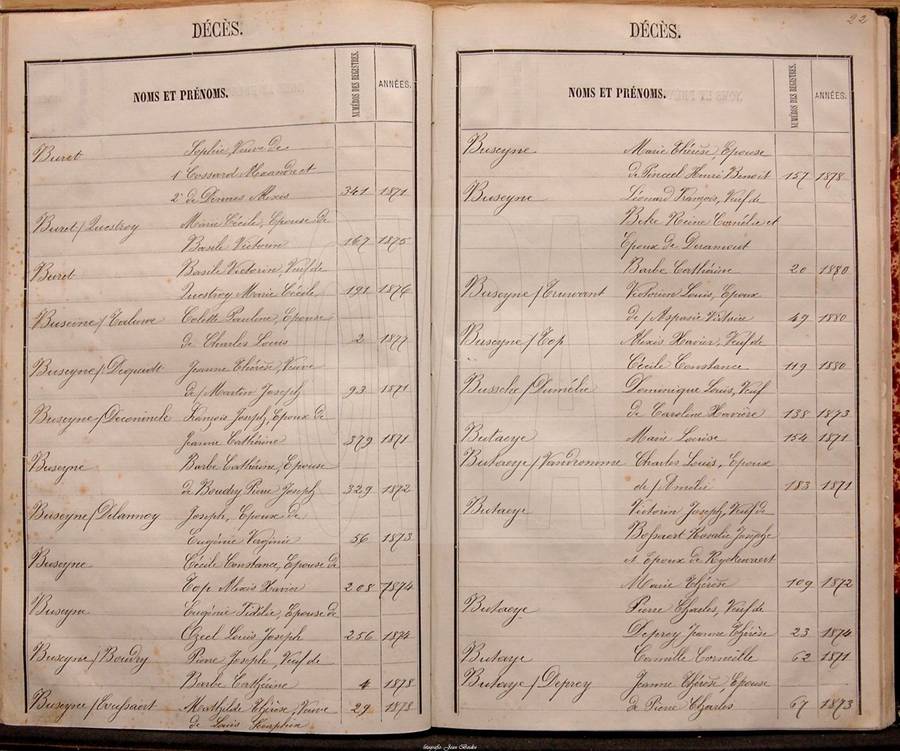 DÉCÈS.
NOMS ET PRÉNOMS. NUMÉROS DES REGISTRES. ANNÉES.
Buret Sophie, Veuve de
1° Cossard Alexandre et
2° de Dermes Alexis 341 1871
Buret/Questroy Marie Cécile, Epouse de
Basile Victorin 167 1875
Buret Basile Victorin, Veuf de
Questroy Marie Cécile 191 1876
Colette Pauline, Epouse
de Charles Louis 2 1877
Buseyne/Dequidt Jeanne Thérèse, Veuve
de/Martin Joseph 93 1871
Buseyne/Deconinck François Joseph, Epoux de
Jeanne Cathérine 379 1871
Buseyne Barbe Cathérine, Epouse
de Boudry Pierre Joseph 329 1872
Buseyne/Delannoy Joseph, Epoux de
Eugénie Virginie 56 1873
Buseyne Cécile Constance, Epouse de
Top Alexis Xavier 208 1874
Buseyne Eugénie Fidélie, Epouse de
Louis Joseph 256 1874
Buseyne/Boudry Pierre Joseph, Veuf de
Barbe Cathérine 4 1878
Buseyne/ Mathilde Thérèse, Veuve 29 1878
de Louis Séraphin
22
DÉCÈS.
NOMS ET PRÉNOMS. NUMÉROS DES REGISTRES. ANNÉES.
Buseyne Marie Thérèse, Epouse
de Henri Benoit 157 1878
Buseyne Léonard François, Veuf de
Beke Reine Cornélie et
Epoux de Deramout
Barbe Cathérine 20 1880
Buseyne/Truwant Victorin Louis, Epoux
de/Aspasie Victoire 49 1880
Buseyne/Top Alexis Xavier, Veuf de
Cécile Constance 119 1880
Bussche/Dumélie Dominique Louis, Veuf
de Caroline Xavière 138 1873
Butaeye Marie Louise 154 1871
Butaeye/Vandromme Charles Louis, Epoux
de/Amélie 183 1871
Butaeye Victorin Joseph, Veuf de
Bossaert Rosalie Josèphe
et Epoux de Ryckewaert
Marie Thérèse 109 1872
Butaeye Pierre Charles, Veuf de
Deprey Jeanne Thérèse 23 1874
Butaye Camille Corneille 62 1871
Butaye/Deprey Jeanne Thérèse, Epouse
de Pierre Charles 67 1873